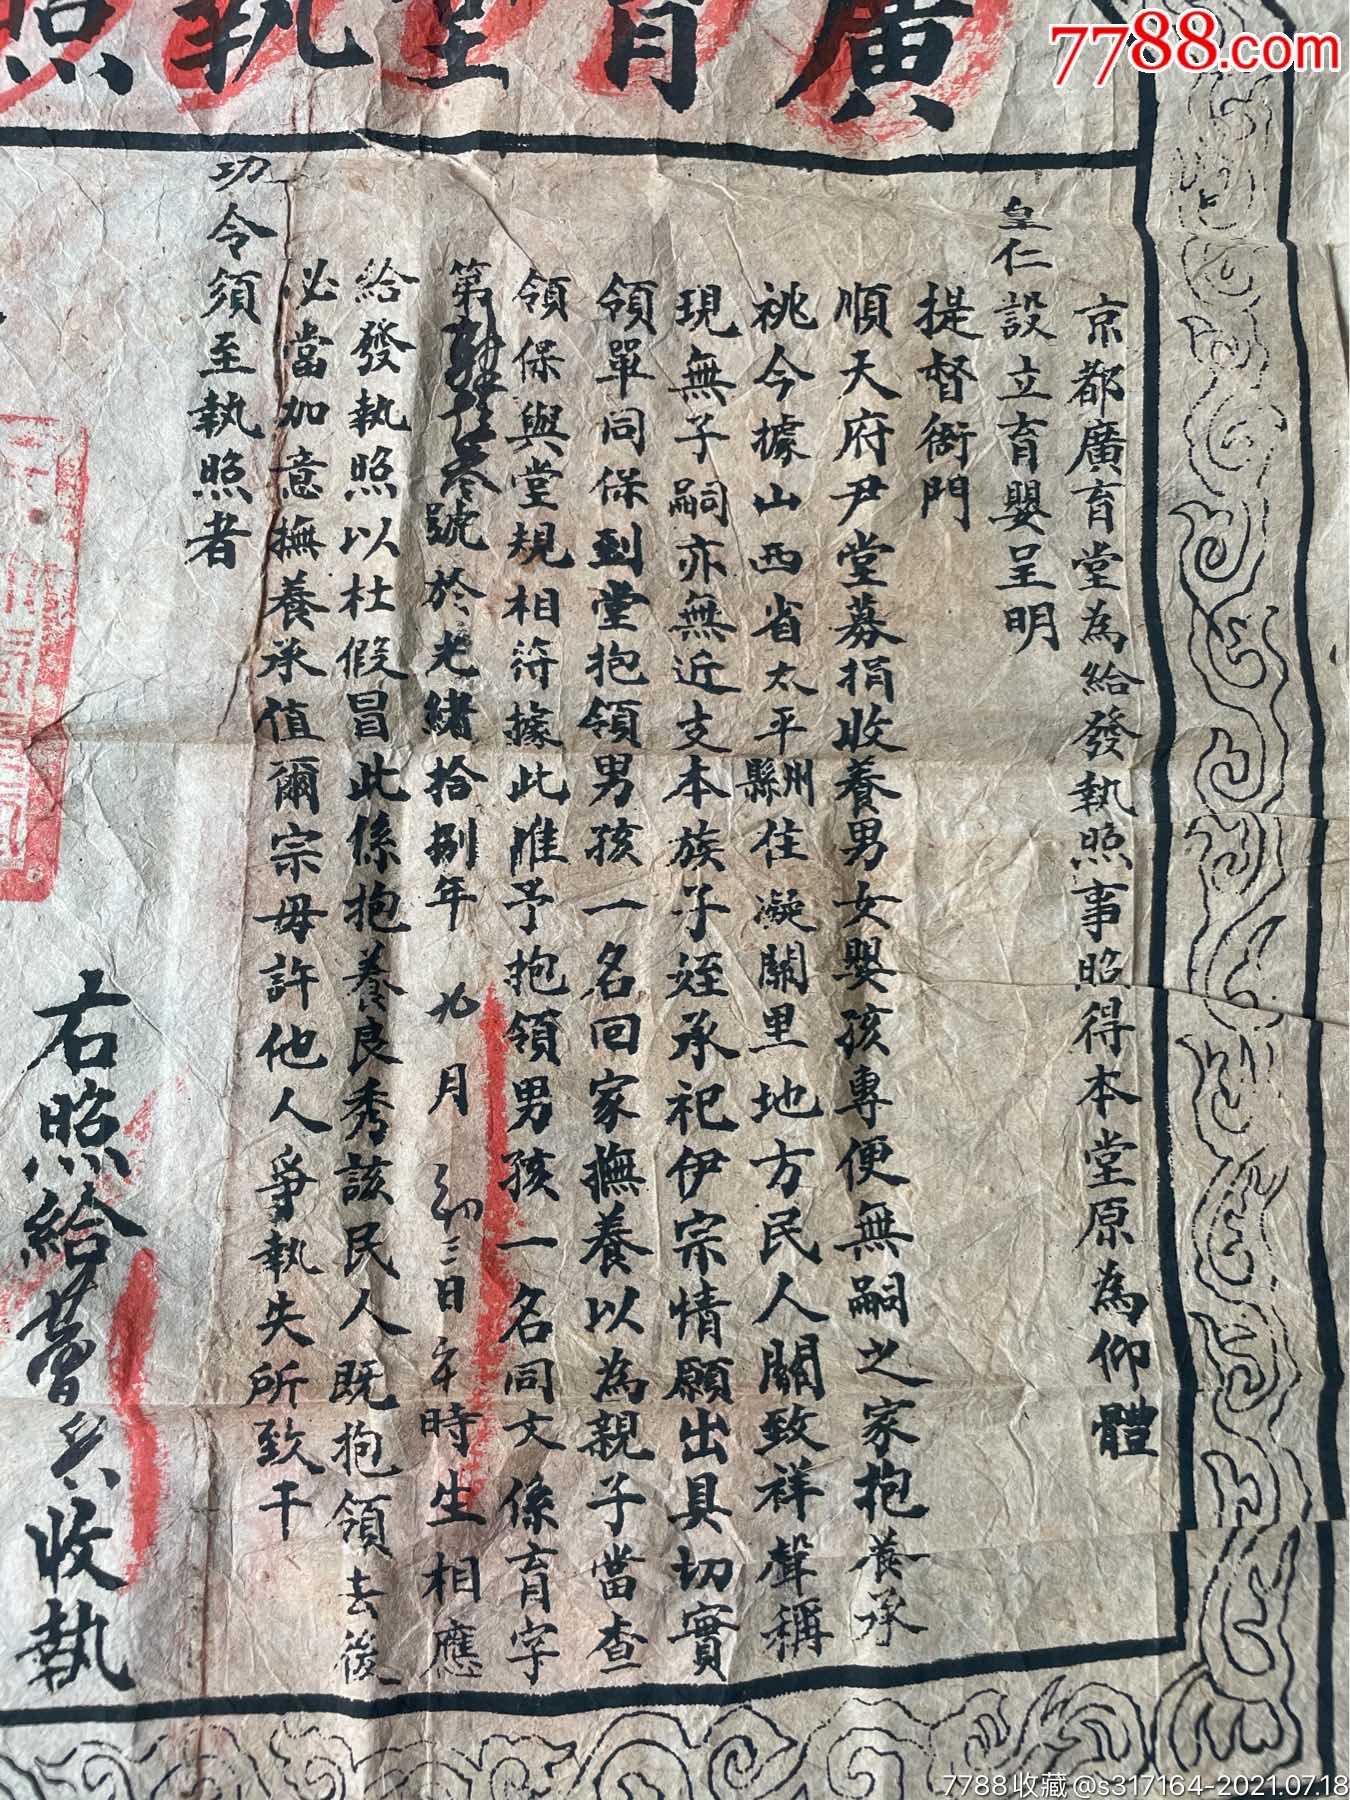 廣育堂執照
京都廣育堂為給發執照事照得本堂原為仰體
皇仁設立育嬰呈明
提督衙門
順天府尹堂募捐收養男女嬰孩專便無嗣之家抱養承
祧今據山西省太平州縣住凝關里地方民人關致祥聲稱
現無子嗣亦無近支本族子姪承祀伊宗情願出具切實
領單同保到堂抱領男孩一名回家撫養以為親子當查
領保與堂規相符據此准予抱領男孩一名同文係育字
第叁號於光緒拾捌年九月初三日辛時生相應
給發執照以杜假冒此係抱養良秀該民人既抱領去後
必當加意撫養承值爾宗毋許他人爭執失所致干
功令須至執照者
右照給收執
7788.com
7788收藏@s317164-2021.07.18